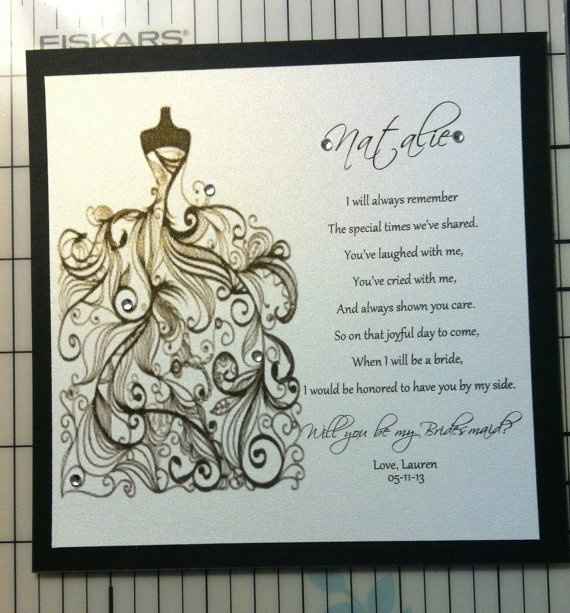 FISKARS
Natalie
I will always remember
The special times we've shared.
You've laughed with me,
You've cried with me,
And always shown you care.
So on that joyful day to come,
When I will be a bride,
I would be honored to have you by my side.
Will you be my Bridesmaid?
Love, Lauren
05-11-13